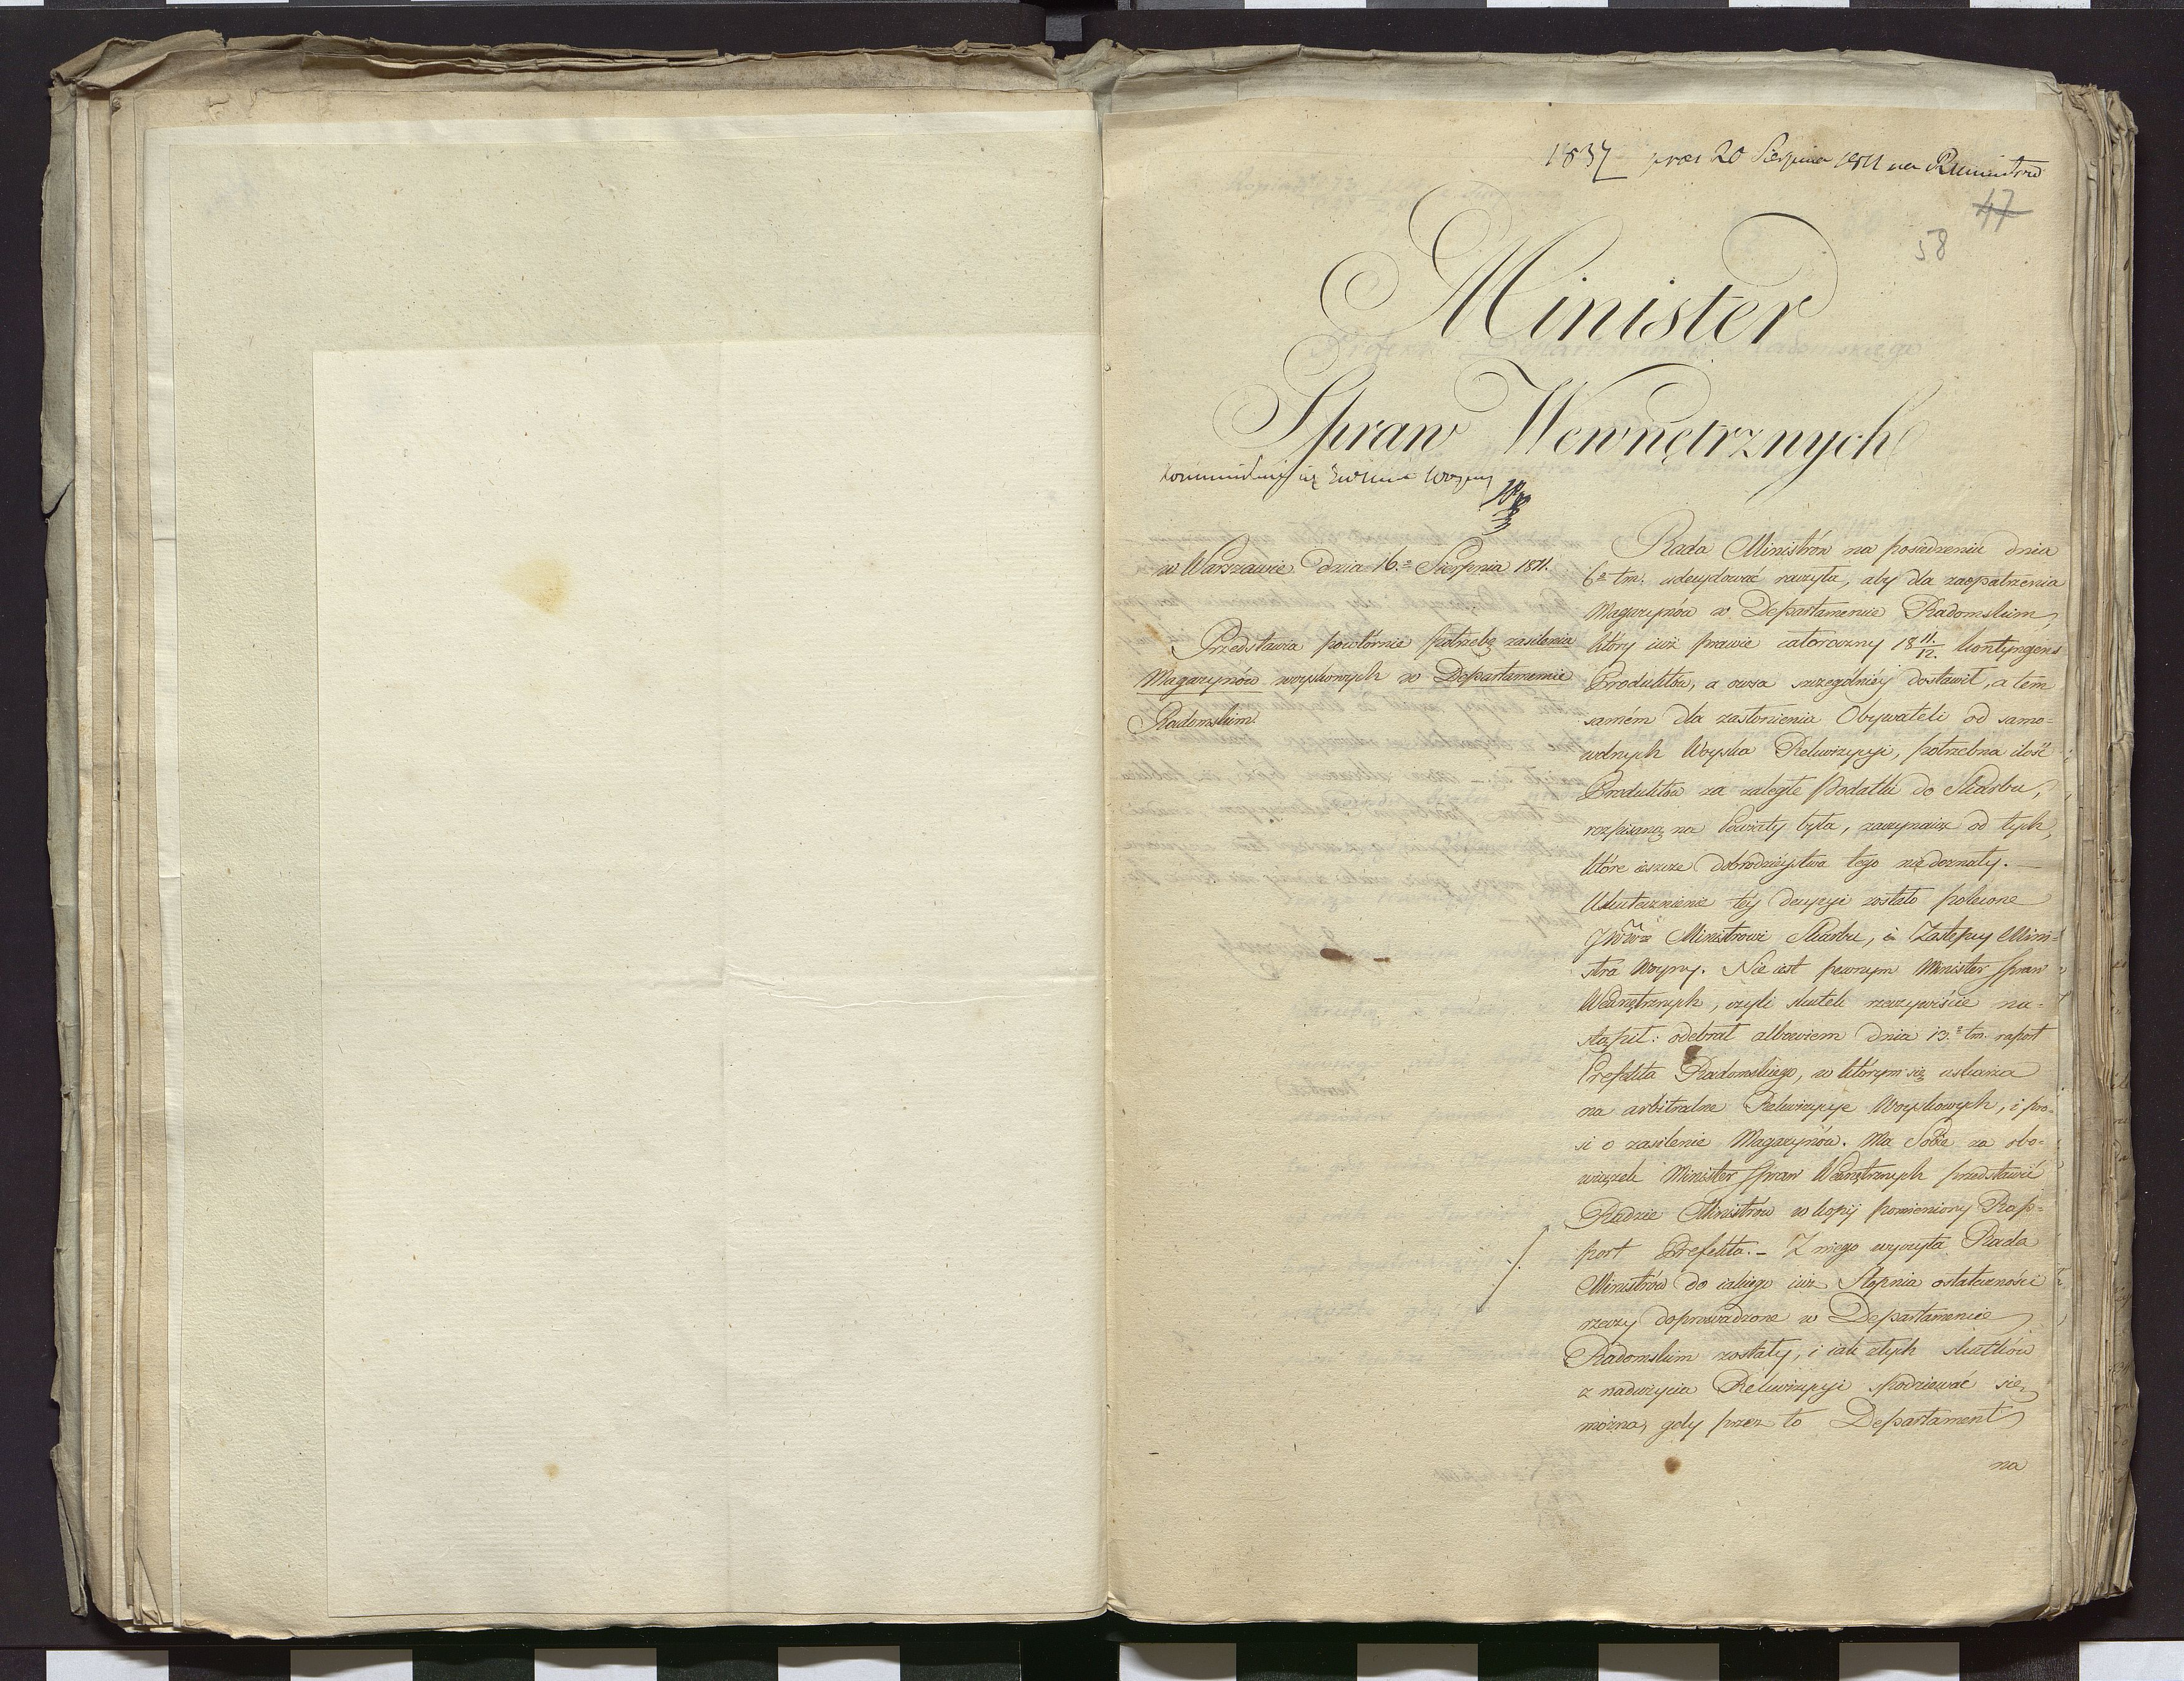 1837 pres 20 Sierpnia 1811 na R Ministrów
47
58
Minister
Spraw Wewnętrznych
w Warszawie dnia 16.º Sierpnia 1811.
Przedstawia powtórnie potrzebę zasilenia
Magazynów woyskowych w Departamencie
Radomskim.
Rada Ministrów na posiedzeniu dnia
6º tm. udecydować raczyła, aby dla zaopatrzenia
Magazynów w Departamencie Radomskim,
który iuż prawie całoroczny 18 11/12. kontyngens
Produktów, a owsa szczególniéy dostawił, a tém
samém dla zasłonienia Obywateli od samo=
wolnych Woyska Rekwizycyi, potrzebna ilość
Produktów za zaległe Podatki do Skarbu,
rozpisaną na Powiaty była, zaczynaiąc od tych,
które ieszcze dobrodzieystwa tego niedoznały. —
Uskutecznienie téy decyzyi zostało polecone
JWW Ministrowi Skarbu, i Zastępcy Mini=
stra Woyny. Nie iest pewnym Minister Spraw
Wewnętrznych, czyli skutek rzeczywiście na=
stąpił: odebrał albowiem dnia 13.º tm. raport
Prefekta Radomskiego, w którym się uskarża
na arbitralne Rekwizycye Woyskowych, i pro=
si o zasilenie Magazynów. Ma Sobie za obo=
wiązek Minister Spraw Wewnętrznych przedstawić
Radzie Ministrów w kopij pomieniony Rap=
port Prefekta. — Z niego wyczyta Rada
Ministrów do iakiego iuż Stopnia ostateczności
rzeczy doprowadzone w Departamencie
Radomskim zostały, i iak złych skutków
z nadużycia Rekwizycyi spodziewać się
można, gdy przez to Departament
na